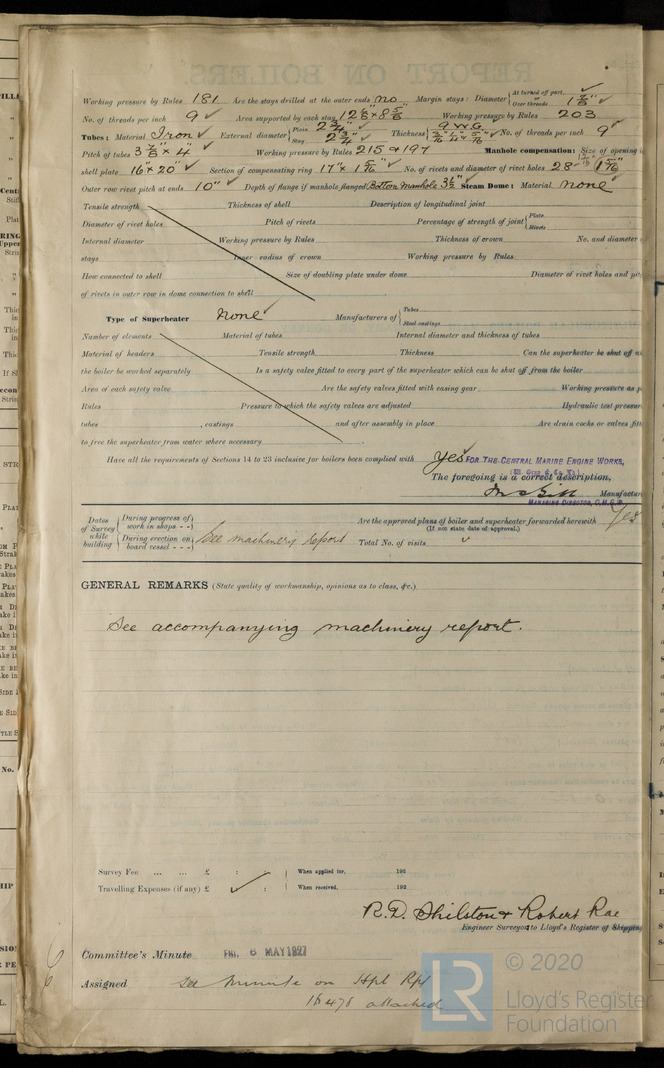 REPORT ON BOILERS.
Working pressure by Rules 181 Are the stays drilled at the outer ends no Margin stays: Diameter { At turned off part, or Over threads 1 7/8"
No. of threads per inch 9 Area supported by each stay 12 5/8 x 8 5/8 Working pressure by Rules 203
Tubes: Material Iron External diameter { Plain 2 3/4" Stay 2 3/4" Thickness { 9 W.G. 5/16" No. of threads per inch 9
Pitch of tubes 3 7/8" x 4" Working pressure by Rules 215 & 197 Manhole compensation: Size of opening i
shell plate 16" x 20" Section of compensating ring 17" x 1 5/16" No. of rivets and diameter of rivet holes 28 - 1 5/16"
Outer row rivet pitch at ends 10" Depth of flange if manhole flanged Bottom Manhole 3 1/2" Steam Dome: Material none
Tensile strength Thickness of shell Description of longitudinal joint
Diameter of rivet holes Pitch of rivets Percentage of strength of joint { Plate Rivets
Internal diameter Working pressure by Rules Thickness of crown No. and diameter
stays Inner radius of crown Working pressure by Rules
How connected to shell Size of doubling plate under dome Diameter of rivet holes and pit
of rivets in outer row in dome connection to shell
Type of Superheater none Manufacturers of { Tubes Steel castings
Number of elements Material of tubes Internal diameter and thickness of tubes
Material of headers Tensile strength Thickness Can the superheater be shut off a
the boiler be worked separately Is a safety valve fitted to every part of the superheater which can be shut off from the boiler
Area of each safety valve Are the safety valves fitted with easing gear Working pressure as p
Rules Pressure to which the safety valves are adjusted Hydraulic test pressure
tubes , castings and after assembly in place Are drain cocks or valves fitt
to free the superheater from water where necessary
Have all the requirements of Sections 14 to 23 inclusive for boilers been complied with Yes
FOR THE CENTRAL MARINE ENGINE WORKS,
The foregoing is a correct description,
Manufactur
MANAGING DIRECTOR, C.M.E.W.
Dates of Survey while building { During progress of work in shops - - During erection on board vessel - - - See machinery report
Are the approved plans of boiler and superheater forwarded herewith Yes
(If not state date of approval.)
Total No. of visits
GENERAL REMARKS (State quality of workmanship, opinions as to class, &c.)
See accompanying machinery report.
Survey Fee ... ... £ : : When applied for, 192
Travelling Expenses (if any) £ : : When received, 192
R.D. Shilston & Robert Rae
Engineer Surveyor to Lloyd's Register of Shipping
Committee's Minute FRI. 6 MAY 1927
Assigned see minute on Hpl Rpt
16478 attached
© 2020
Lloyd's Register
Foundation
LR